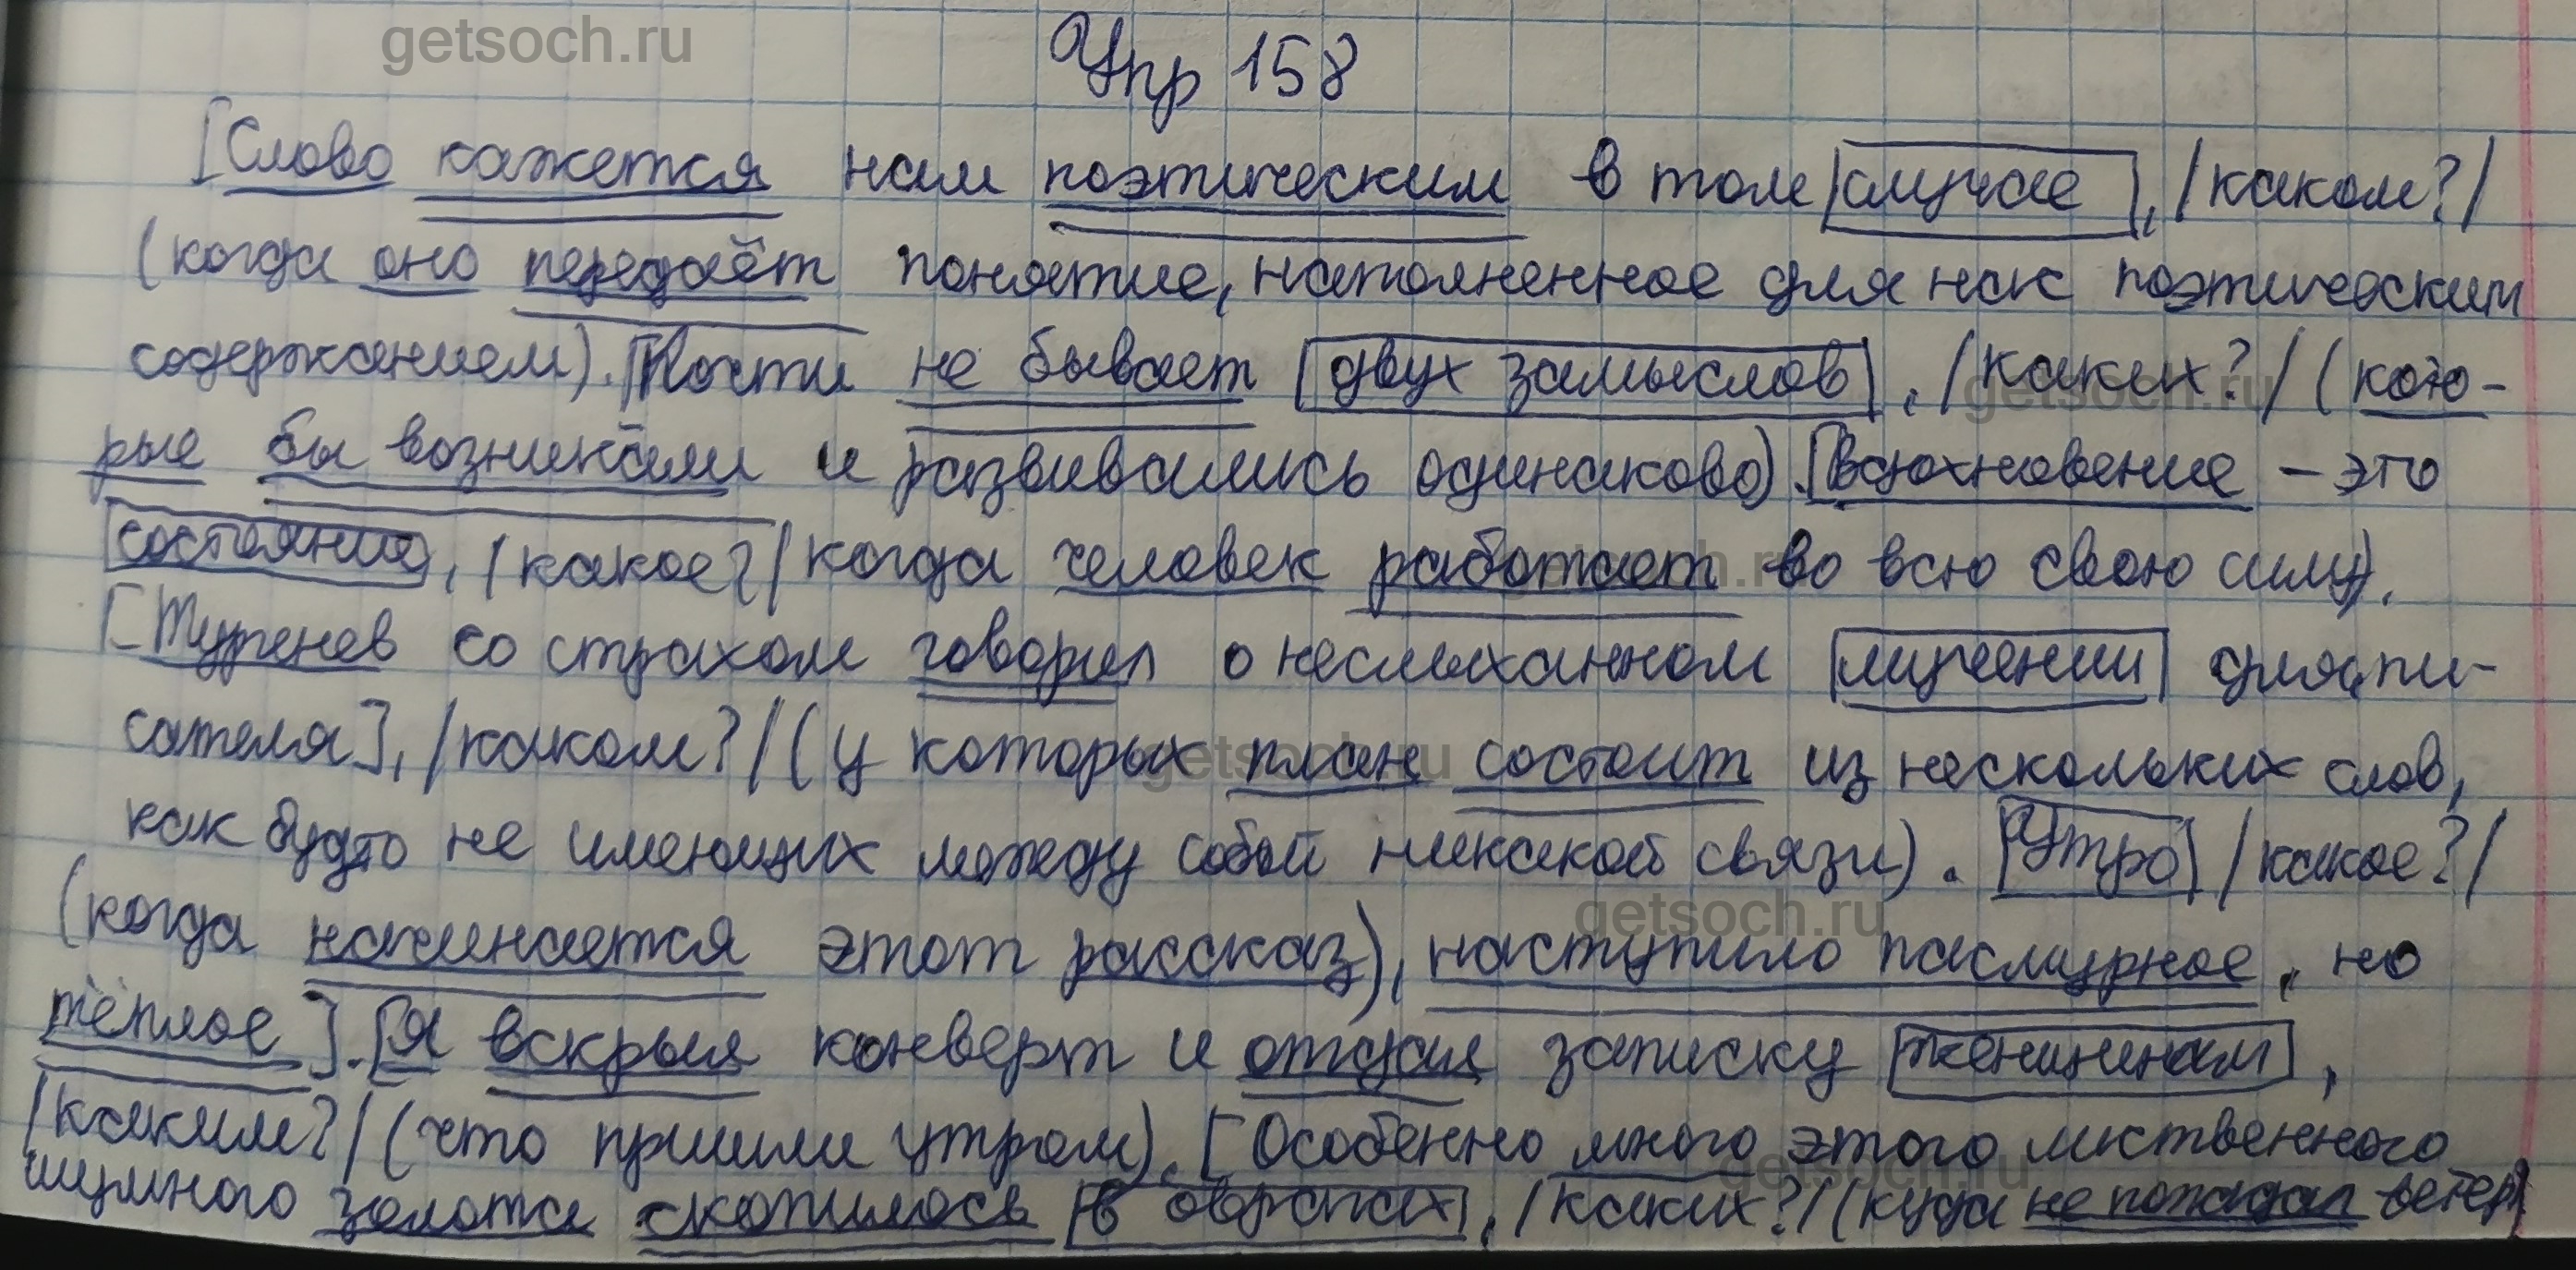 getsoch.ru
Упр 158
[Слово кажется нам поэтическим в том [случае], /каком?/
(когда оно передаёт понятие, наполненное для нас поэтическим
содержанием). [Почти не бывает [двух замыслов], /каких?/ (кото-
getsoch.ru
рые бы возникали и развивались одинаково). [Вдохновение - это
[состояние], /какое?/ когда человек работает во всю свою силу).
getsoch.ru
[Тургенев со страхом говорил о неслыханном [мучении] для пи-
сателя], /каком?/ (у которых план состоит из нескольких слов,
getsoch.ru
как будто не имеющих между собой никакой связи). [Утро] /какое?/
getsoch.ru
(когда начинается этот рассказ), наступило пасмурное, но
тёплое]. [Я вскрыл конверт и отдал записку [женщинам],
/каким?/ (что пришли утром). [Особенно много этого лиственного
getsoch.ru
шумного золота скопилось [в оврагах], /каких?/ (куда не попадал ветер)